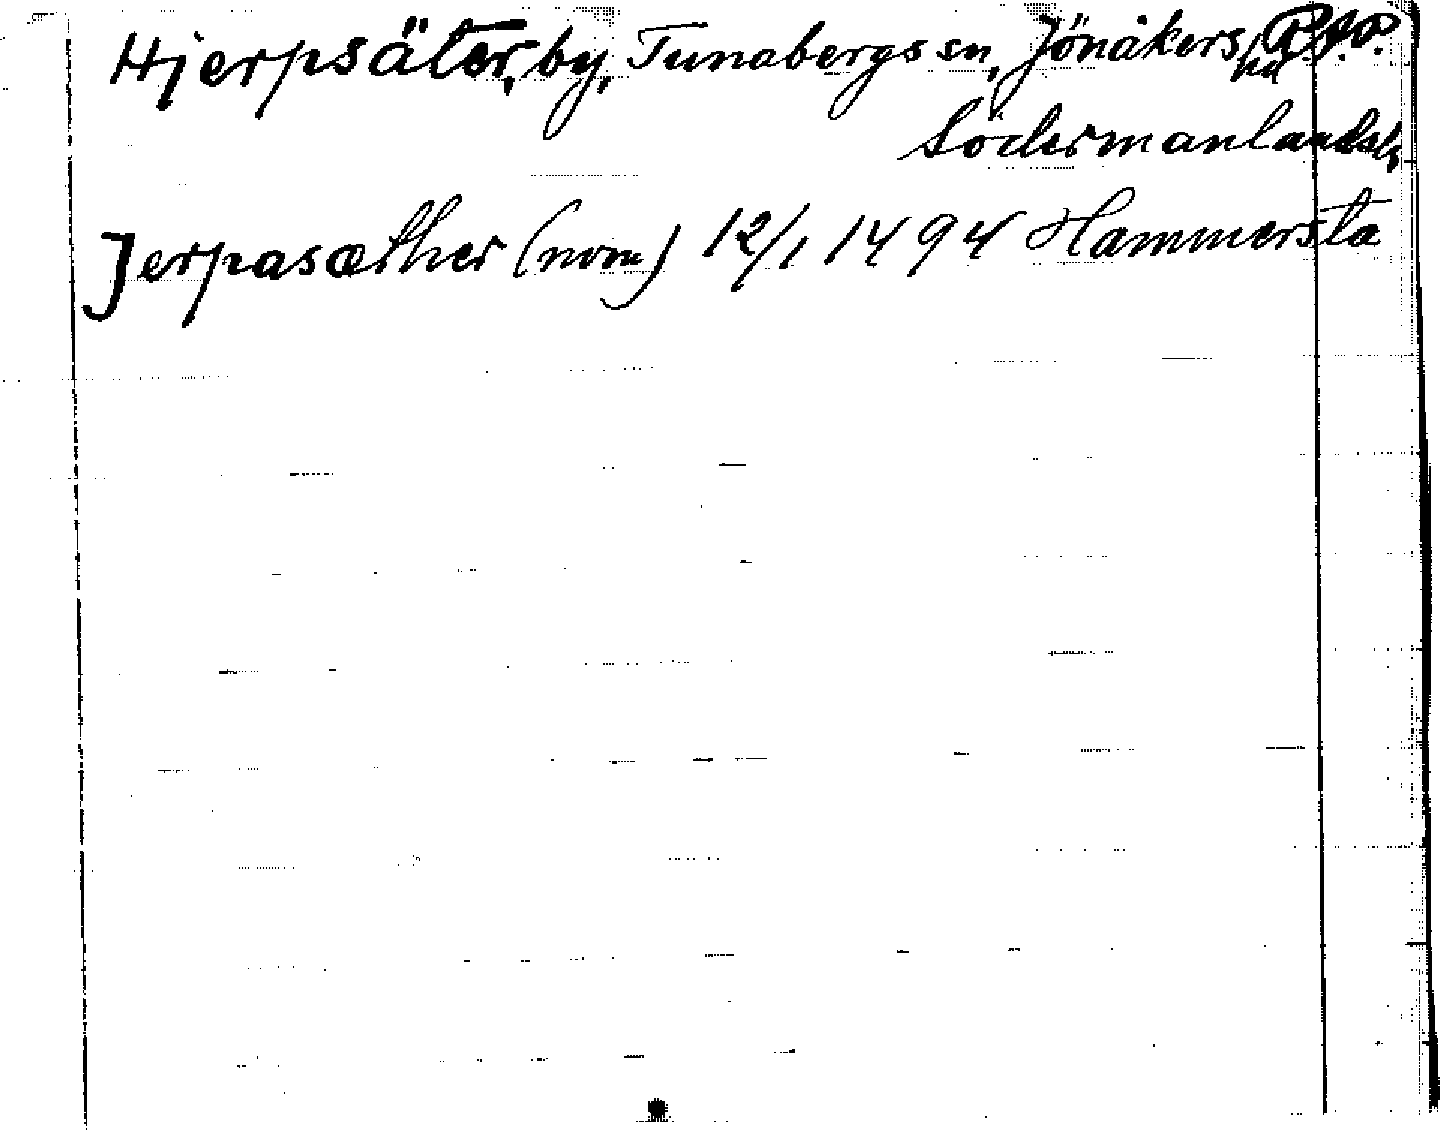 Hjerpsäter, by, Tunabergs sn, Jönåkers hd
Södermanlands l.
Jerpasæther (nom) 12/1 1494 Hammersta